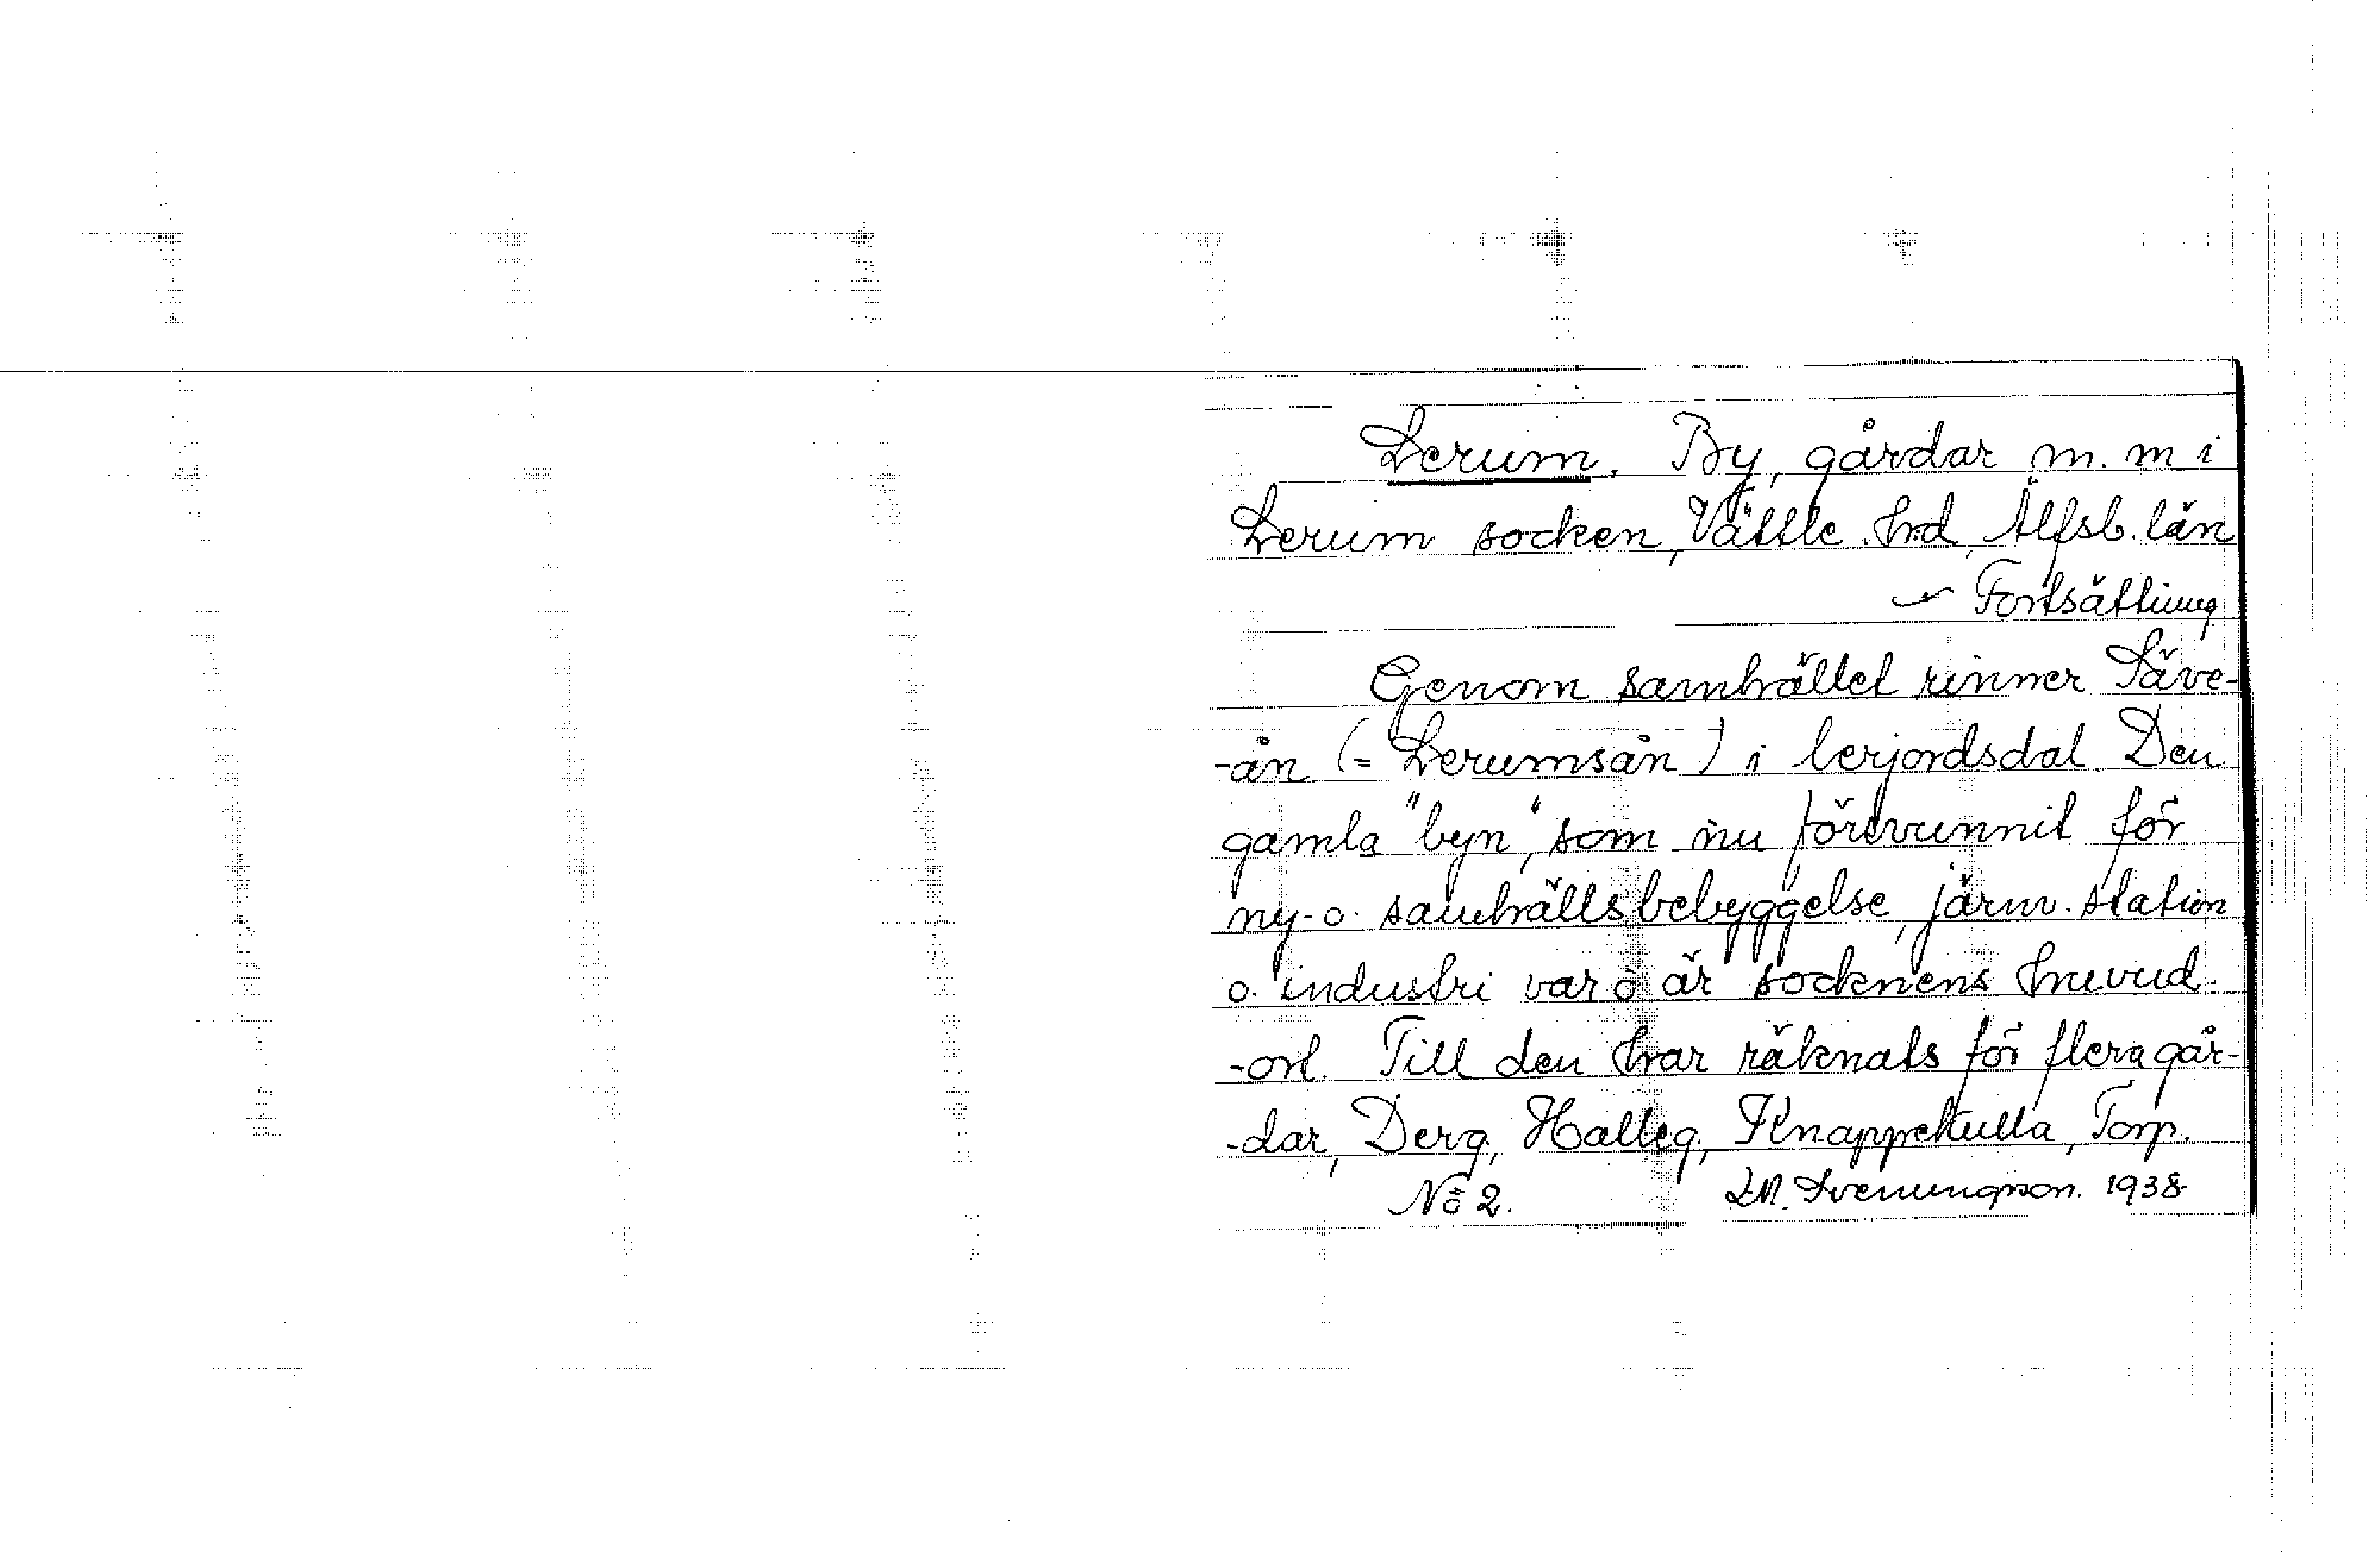 Lerum. By, gårdar m. m i
Lerum socken, Vättle hrd, Älfsb. län
Fortsättning
Genom samhället rinner Säve-
-ån (= Lerumsån) i lerjordsdal. Den
gamla "byn", som nu försvunnit för
ny- o. samhällsbebyggelse, järnv. station
o. industri var o är socknens huvud-
-ort. Till den har räknats för flera går-
-dar, Derg, Halleg, Knappekulla, Torp.
No 2. J.M. Svenungson. 1938